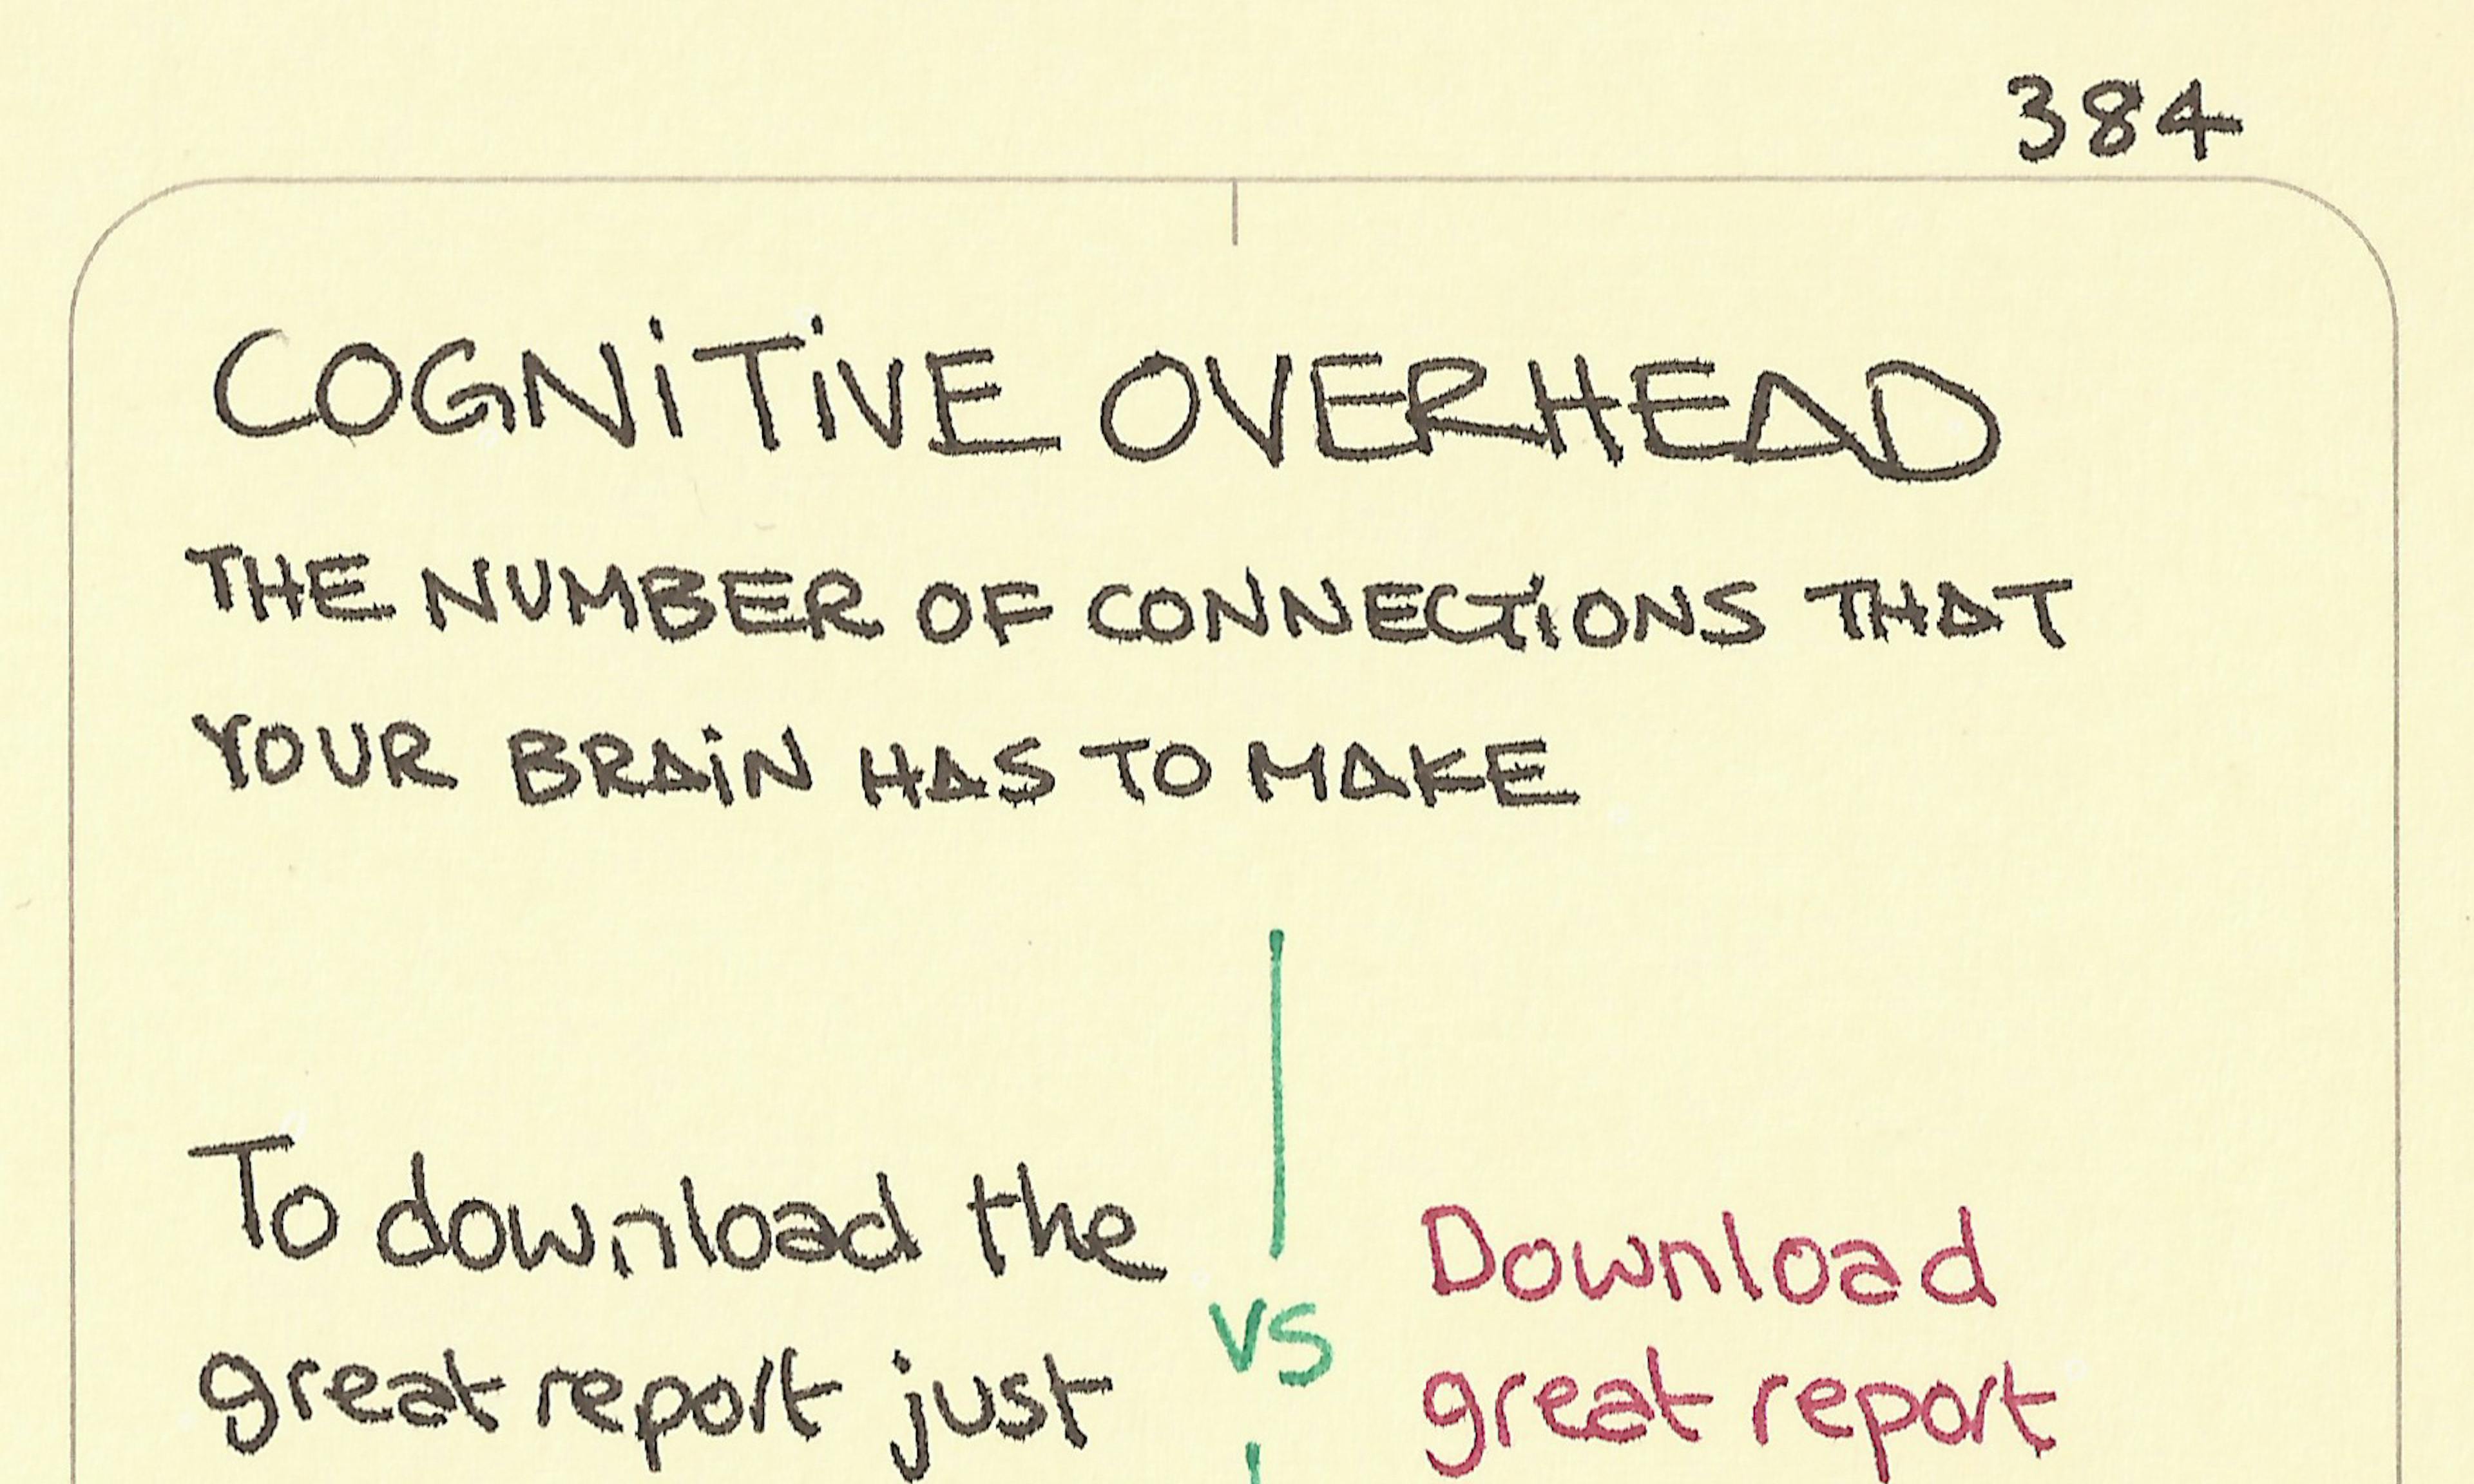 384
COGNiTiVE OVERHEAD
THE NUMBER OF CONNECTiONS THAT
YOUR BRAiN HAS TO MAKE
To download the
great report just
vs
Download
great report